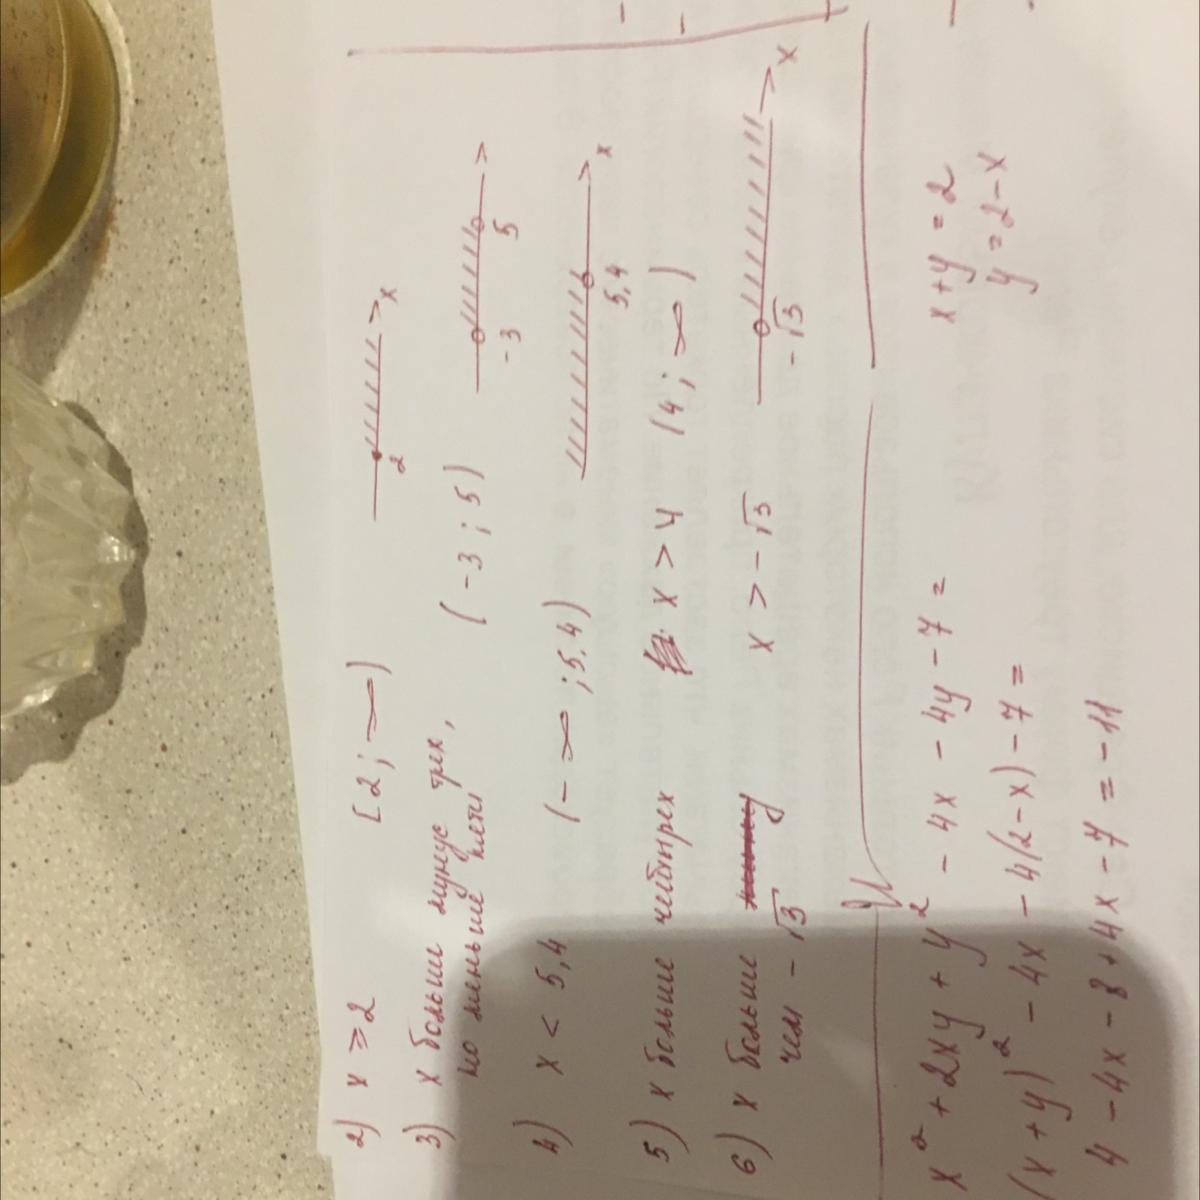 2) x ≥ 2 [2; ∞) 2 x
3) x больше минус трех, (-3; 5) -3 5
но меньше пяти
4) x < 5,4 (-∞; 5,4) 5,4 x
5) x больше четырех x > 4 (4; ∞)
6) x больше x > -√3 -√3 x
чем -√3
x² + 2xy + y² - 4x - 4y - 7 = x + y = 2
(x + y)² - 4x - 4(2 - x) - 7 = y = 2 - x
4 - 4x - 8 + 4x - 7 = -11